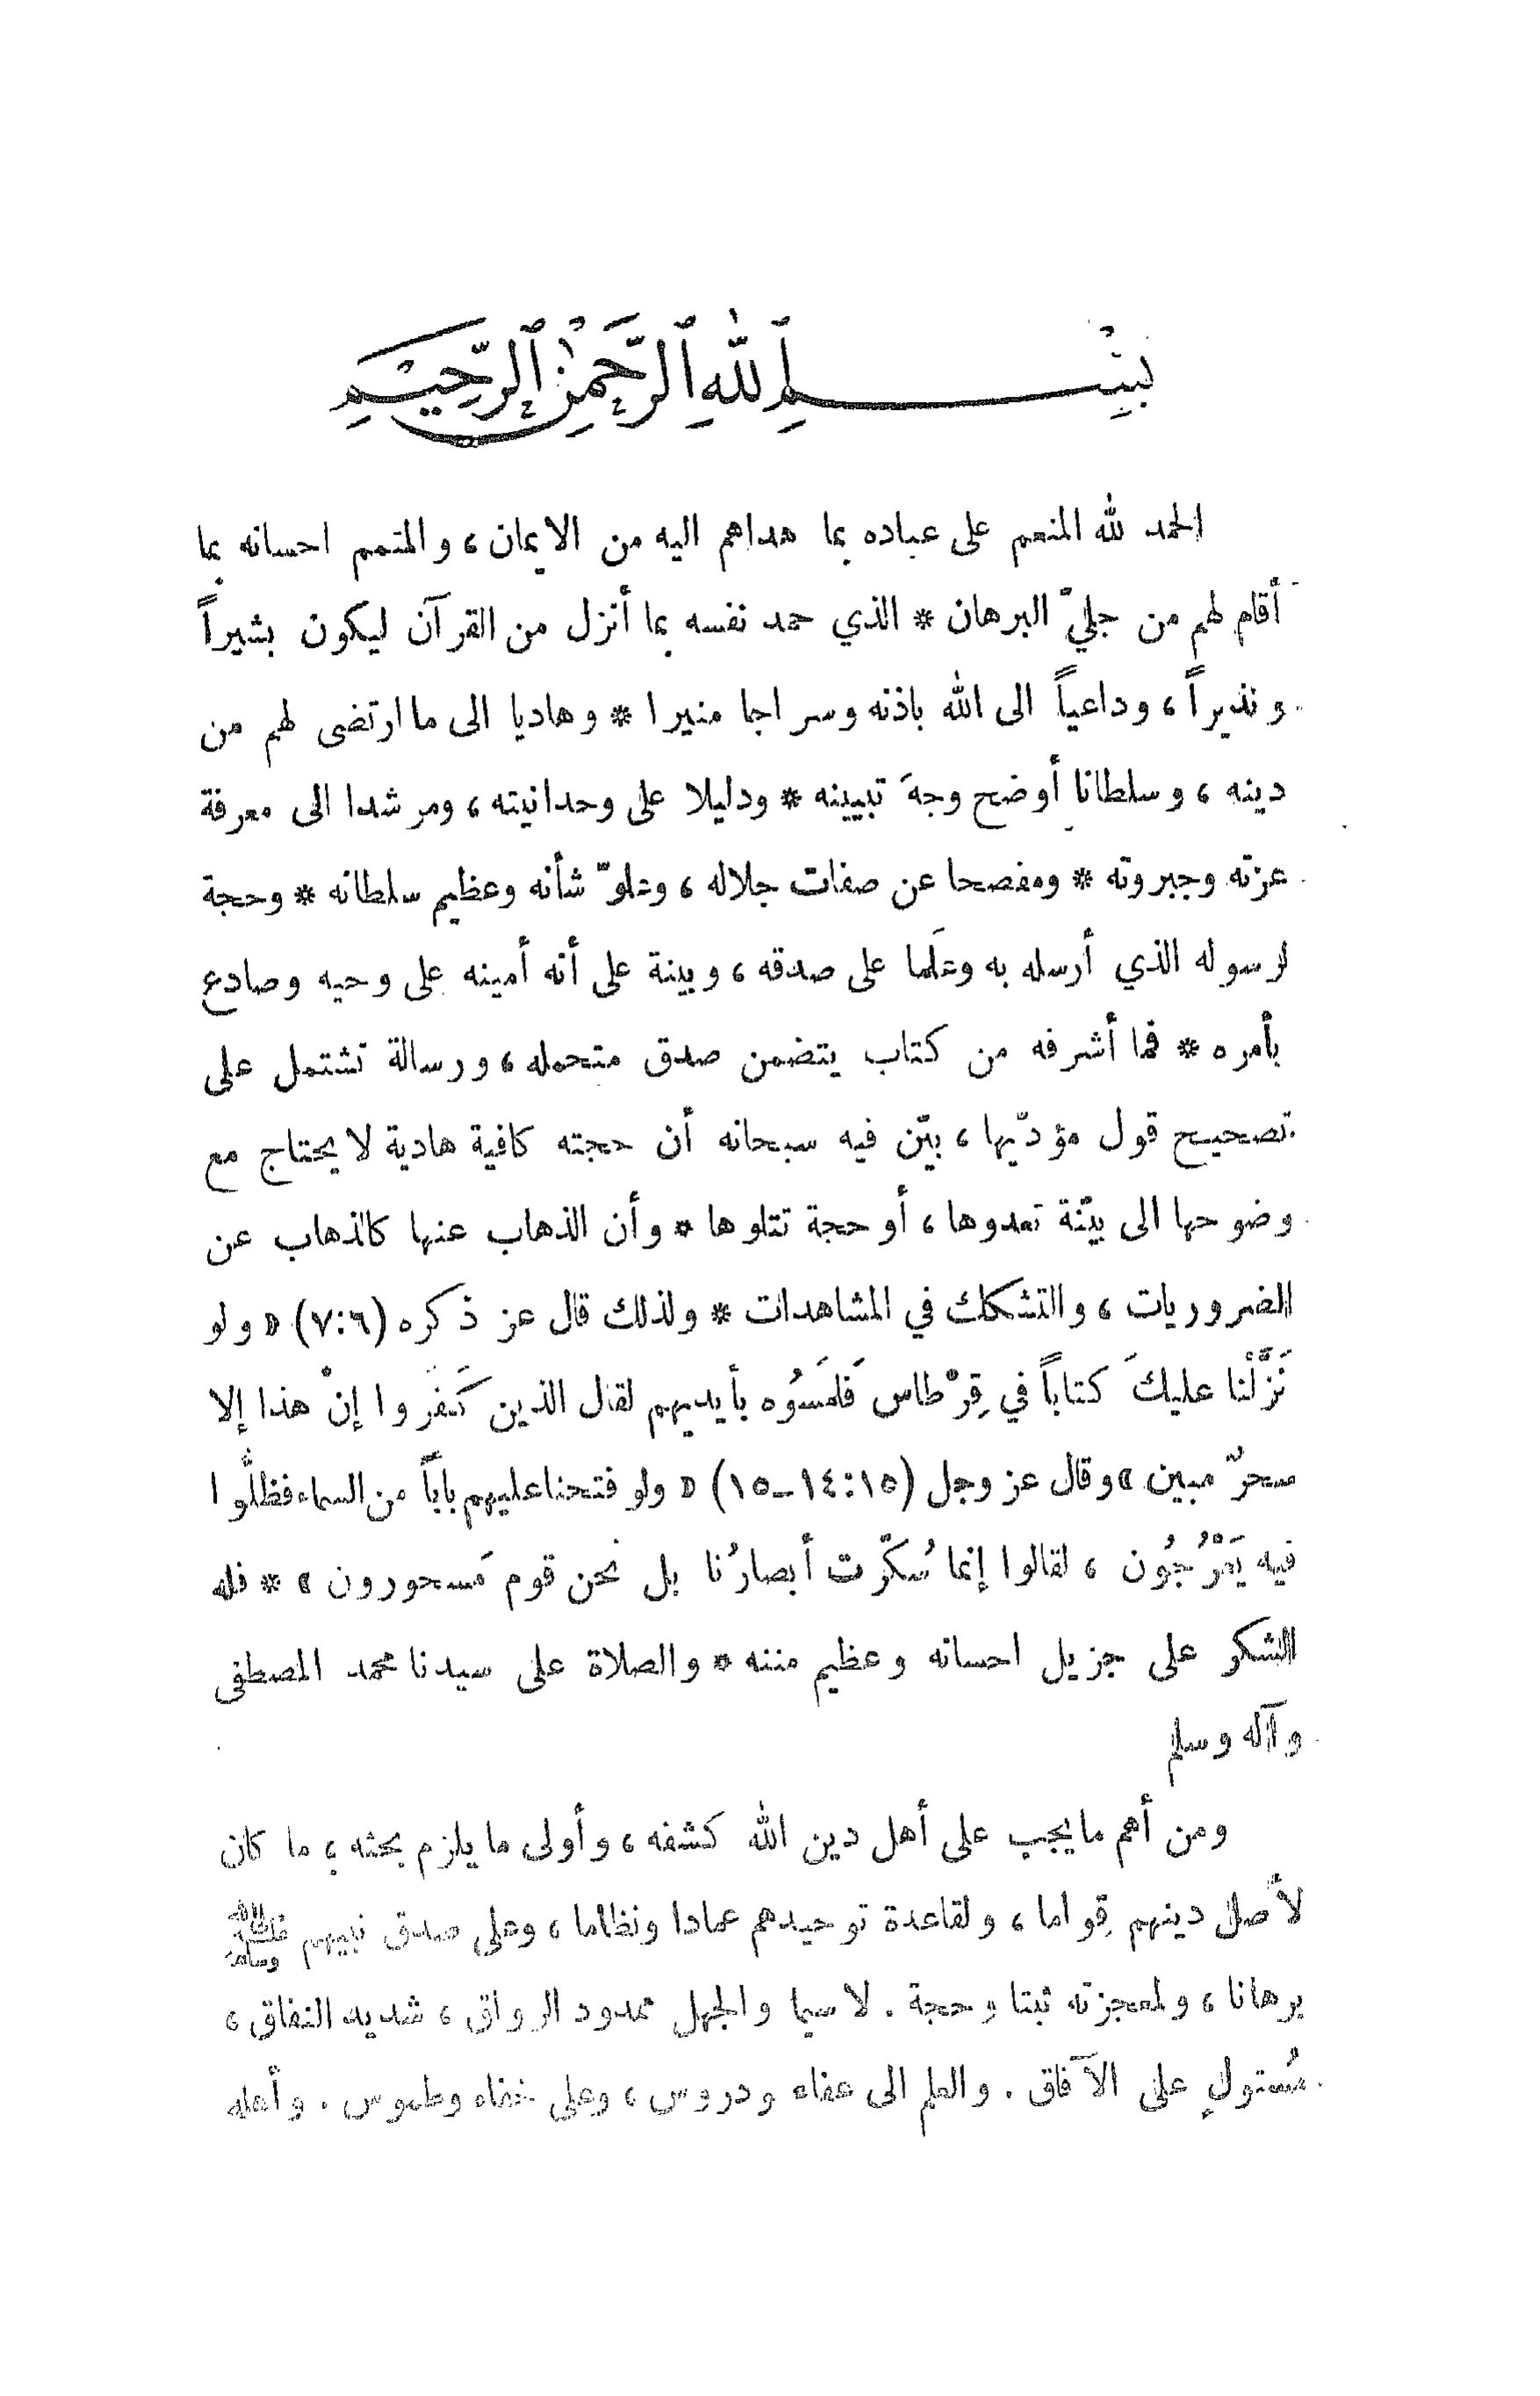 بِسْمِ ٱللّٰهِ ٱلرَّحْمٰنِ ٱلرَّحِيمِ
الحمد لله المنعم على عباده بما هداهم اليه من الايمان، والمتمم احسانه بما
أقام لهم من جليّ البرهان * الذي حمد نفسه بما أنزل من القرآن ليكون بشيراً
ونذيراً، وداعياً الى الله باذنه وسراجا منيرا * وهاديا الى ما ارتضى لهم من
دينه، وسلطانا أوضح وجهَ تبيينه * ودليلا على وحدانيته، ومرشدا الى معرفة
عزته وجبروته * ومفصحا عن صفات جلاله، وعلوّ شأنه وعظيم سلطانه * وحجة
لرسوله الذي أرسله به وعَلَما على صدقه، وبينة على أنه أمينه على وحيه وصادع
بأمره * فما أشرفه من كتاب يتضمن صدق متحمله، ورسالة تشتمل على
تصحيح قول مؤدّيها، بيّن فيه سبحانه أن حجته كافية هادية لا يحتاج مع
وضوحها الى بيّنة تعدوها، أو حجة تتلوها * وأن الذهاب عنها كالذهاب عن
الضروريات، والتشكك في المشاهدات * ولذلك قال عز ذكره (٧:٦) « ولو
نَزَّلْنا عليكَ كتاباً في قِرْطاس فَلمَسُوه بأيديهم لقال الذين كَفَروا إنْ هذا إلا
سحرٌ مبين » وقال عز وجل (١٤:١٥-١٥) « ولو فتحنا عليهم باباً من السماء فظلُّوا
فيه يَعْرُجُون، لقالوا إنما سُكرّت أبصارُنا بل نحن قوم مَسحورون » * فله
الشكر على جزيل احسانه وعظيم مننه * والصلاة على سيدنا محمد المصطفى
وآله وسلم
ومن أهم ما يجب على أهل دين الله كشفه، وأولى ما يلزم بحثه، ما كان
لأصل دينهم قِواما، ولقاعدة توحيدهم عمادا ونظاما، وعلى صدق نبيهم ﷺ
برهانا، ولمعجزته ثبتا وحجة. لا سيما والجهل ممدود الرواق، شديد النفاق،
مُستولٍ على الآفاق. والعلم الى عفاء ودروس، وعلى خفاء وطموس. وأهله